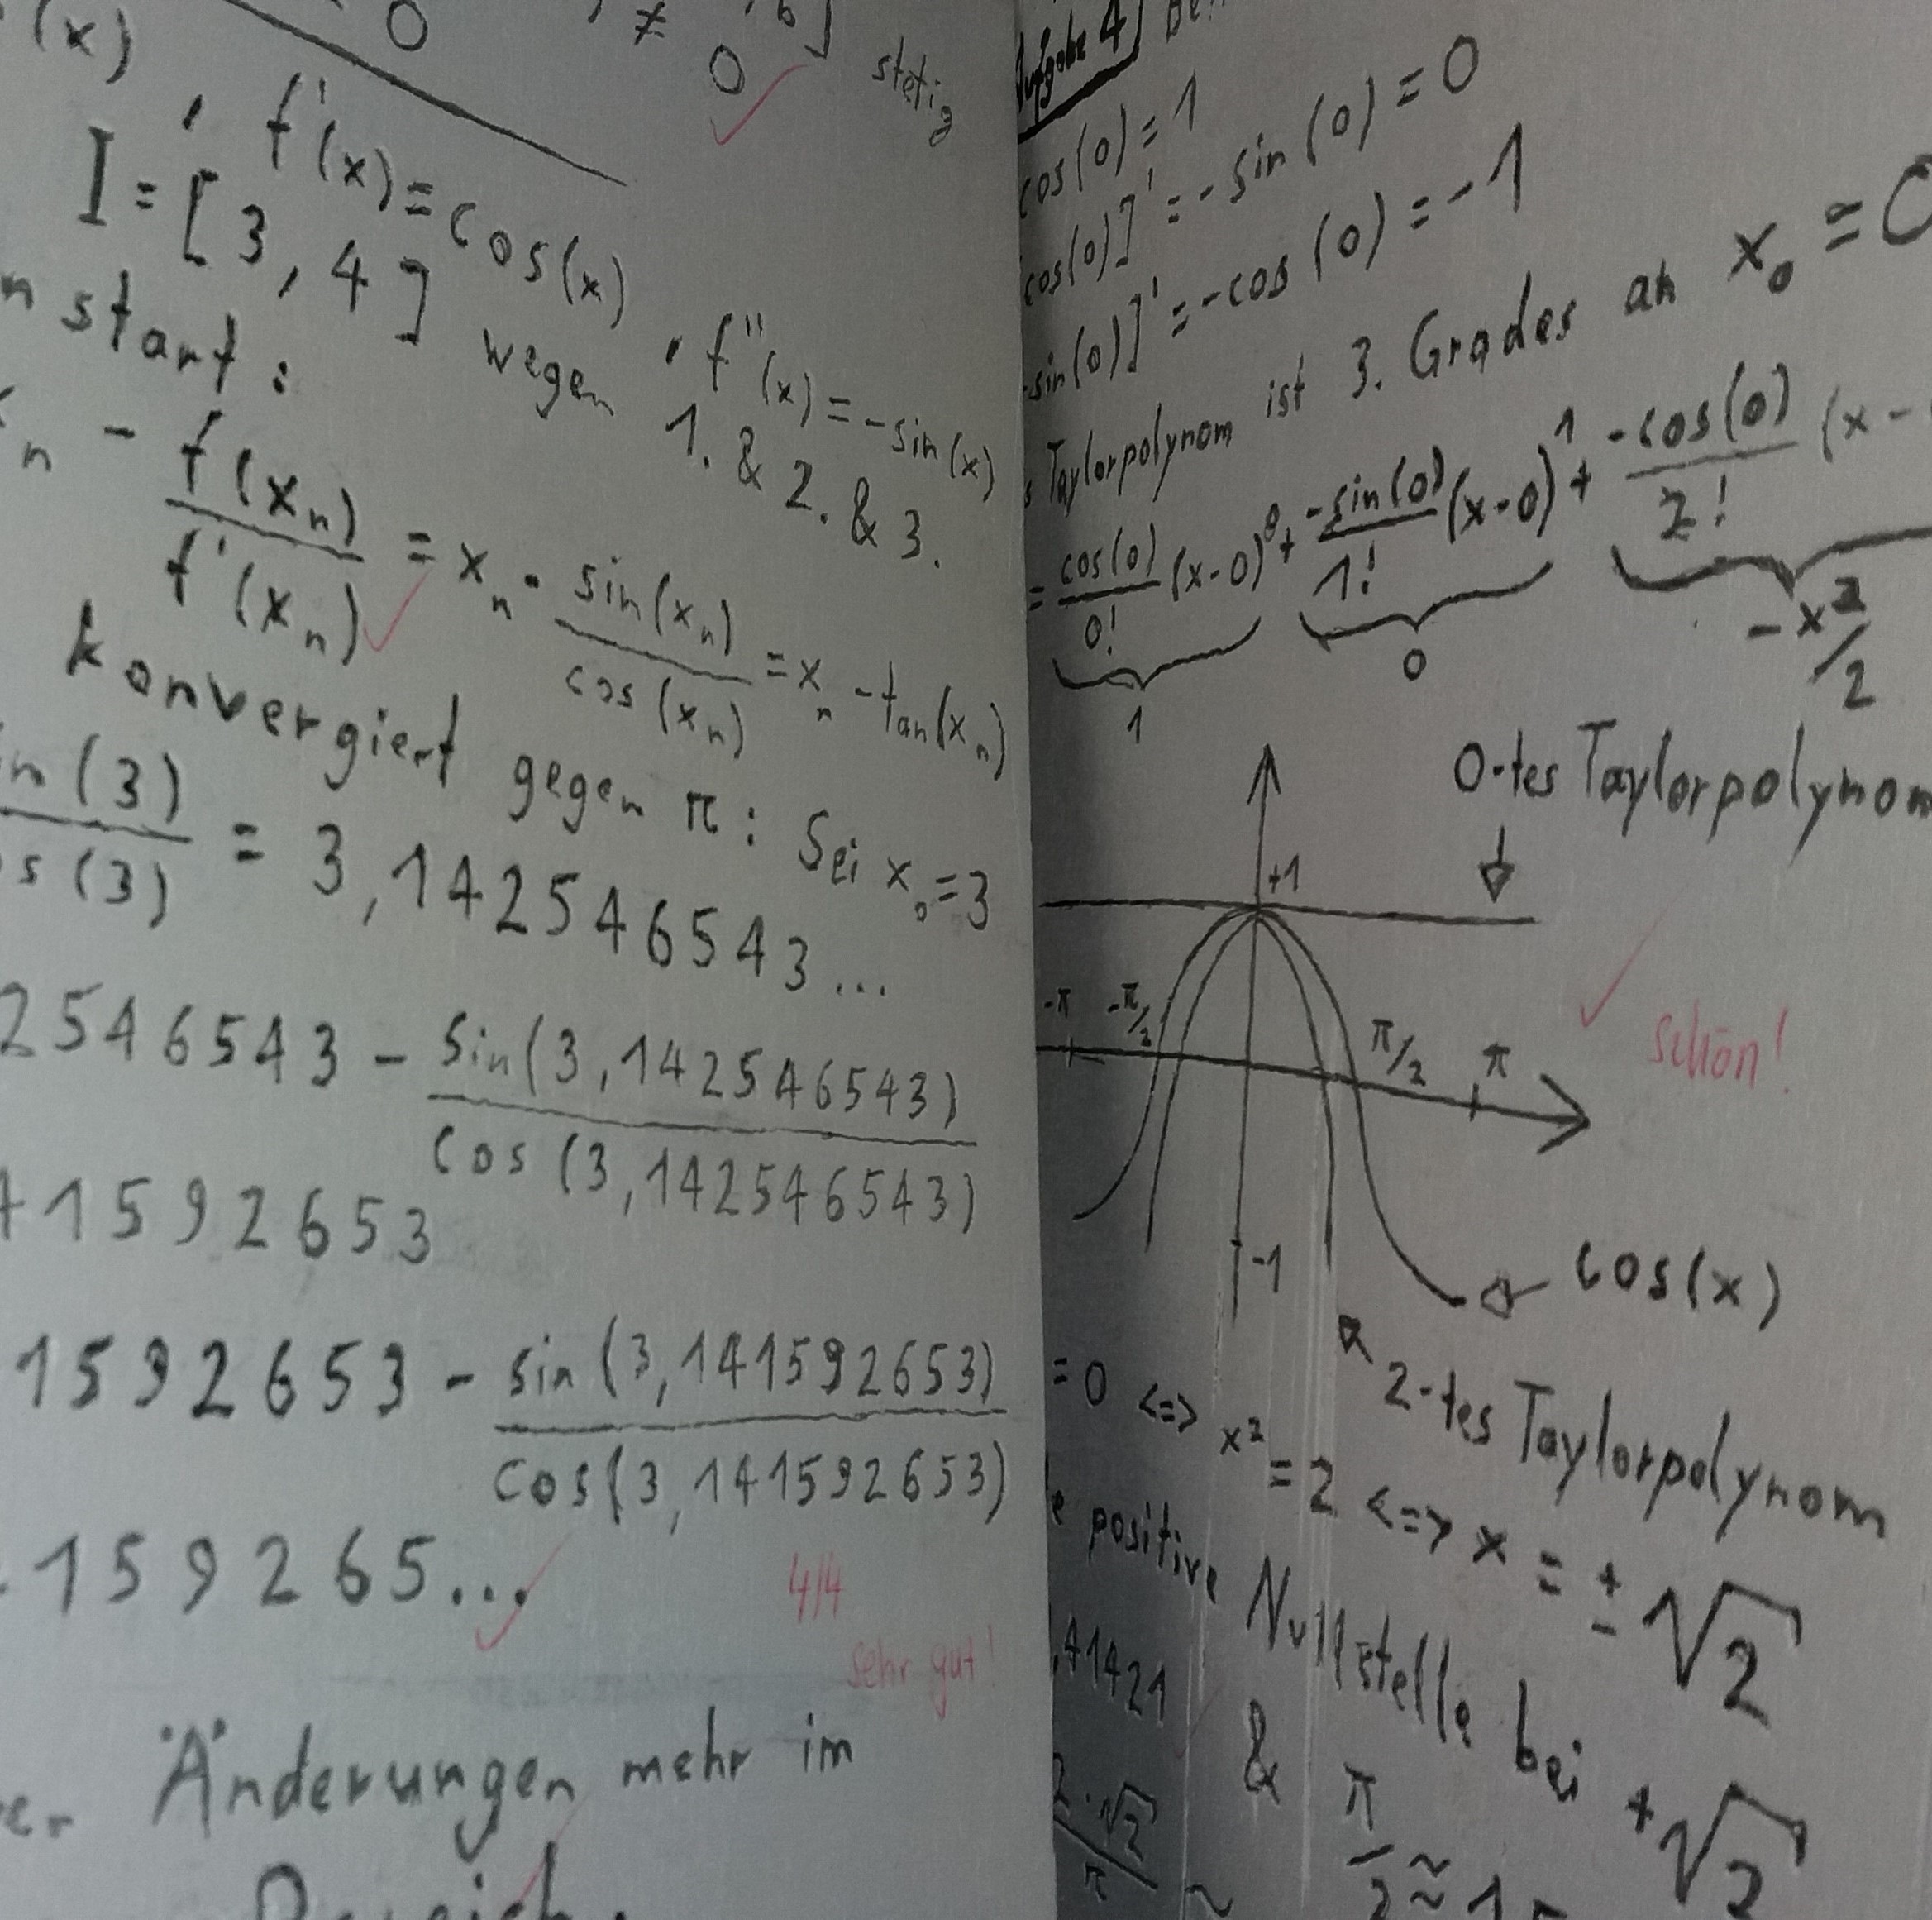 (x)
0 , ≠ 0 , b] stetig
, f'(x) = cos(x) , f''(x) = -sin(x)
I = [3, 4] wegen 1. & 2. & 3.
n start:
n - f(xₙ)/f'(xₙ) = xₙ - sin(xₙ)/cos(xₙ) = xₙ - tan(xₙ)
konvergiert gegen π: Sei x₀ = 3
in(3)/os(3) = 3,142546543...
2546543 - sin(3,142546543)/cos(3,142546543)
41592653
1592653 - sin(3,141592653)/cos(3,141592653)
159265...
4/4
sehr gut!
Änderungen mehr im
Bereich.
Aufgabe 4]
cos(0) = 1
cos(0)]' = -sin(0) = 0
-sin(0)]' = -cos(0) = -1
s Taylorpolynom ist 3. Grades an x₀ = 0
= cos(0)/0! (x-0)⁰ + -sin(0)/1! (x-0)¹ + -cos(0)/2! (x-
1 0 -x²/2
0-tes Taylorpolynom
+1
-π -π/2 π/2 π
schön!
-1
cos(x)
2-tes Taylorpolynom
= 0 <=> x² = 2 <=> x = ±√2
e positive Nullstelle bei +√2
,41421 & π/2 ≈ 1
2·√2/π ≈